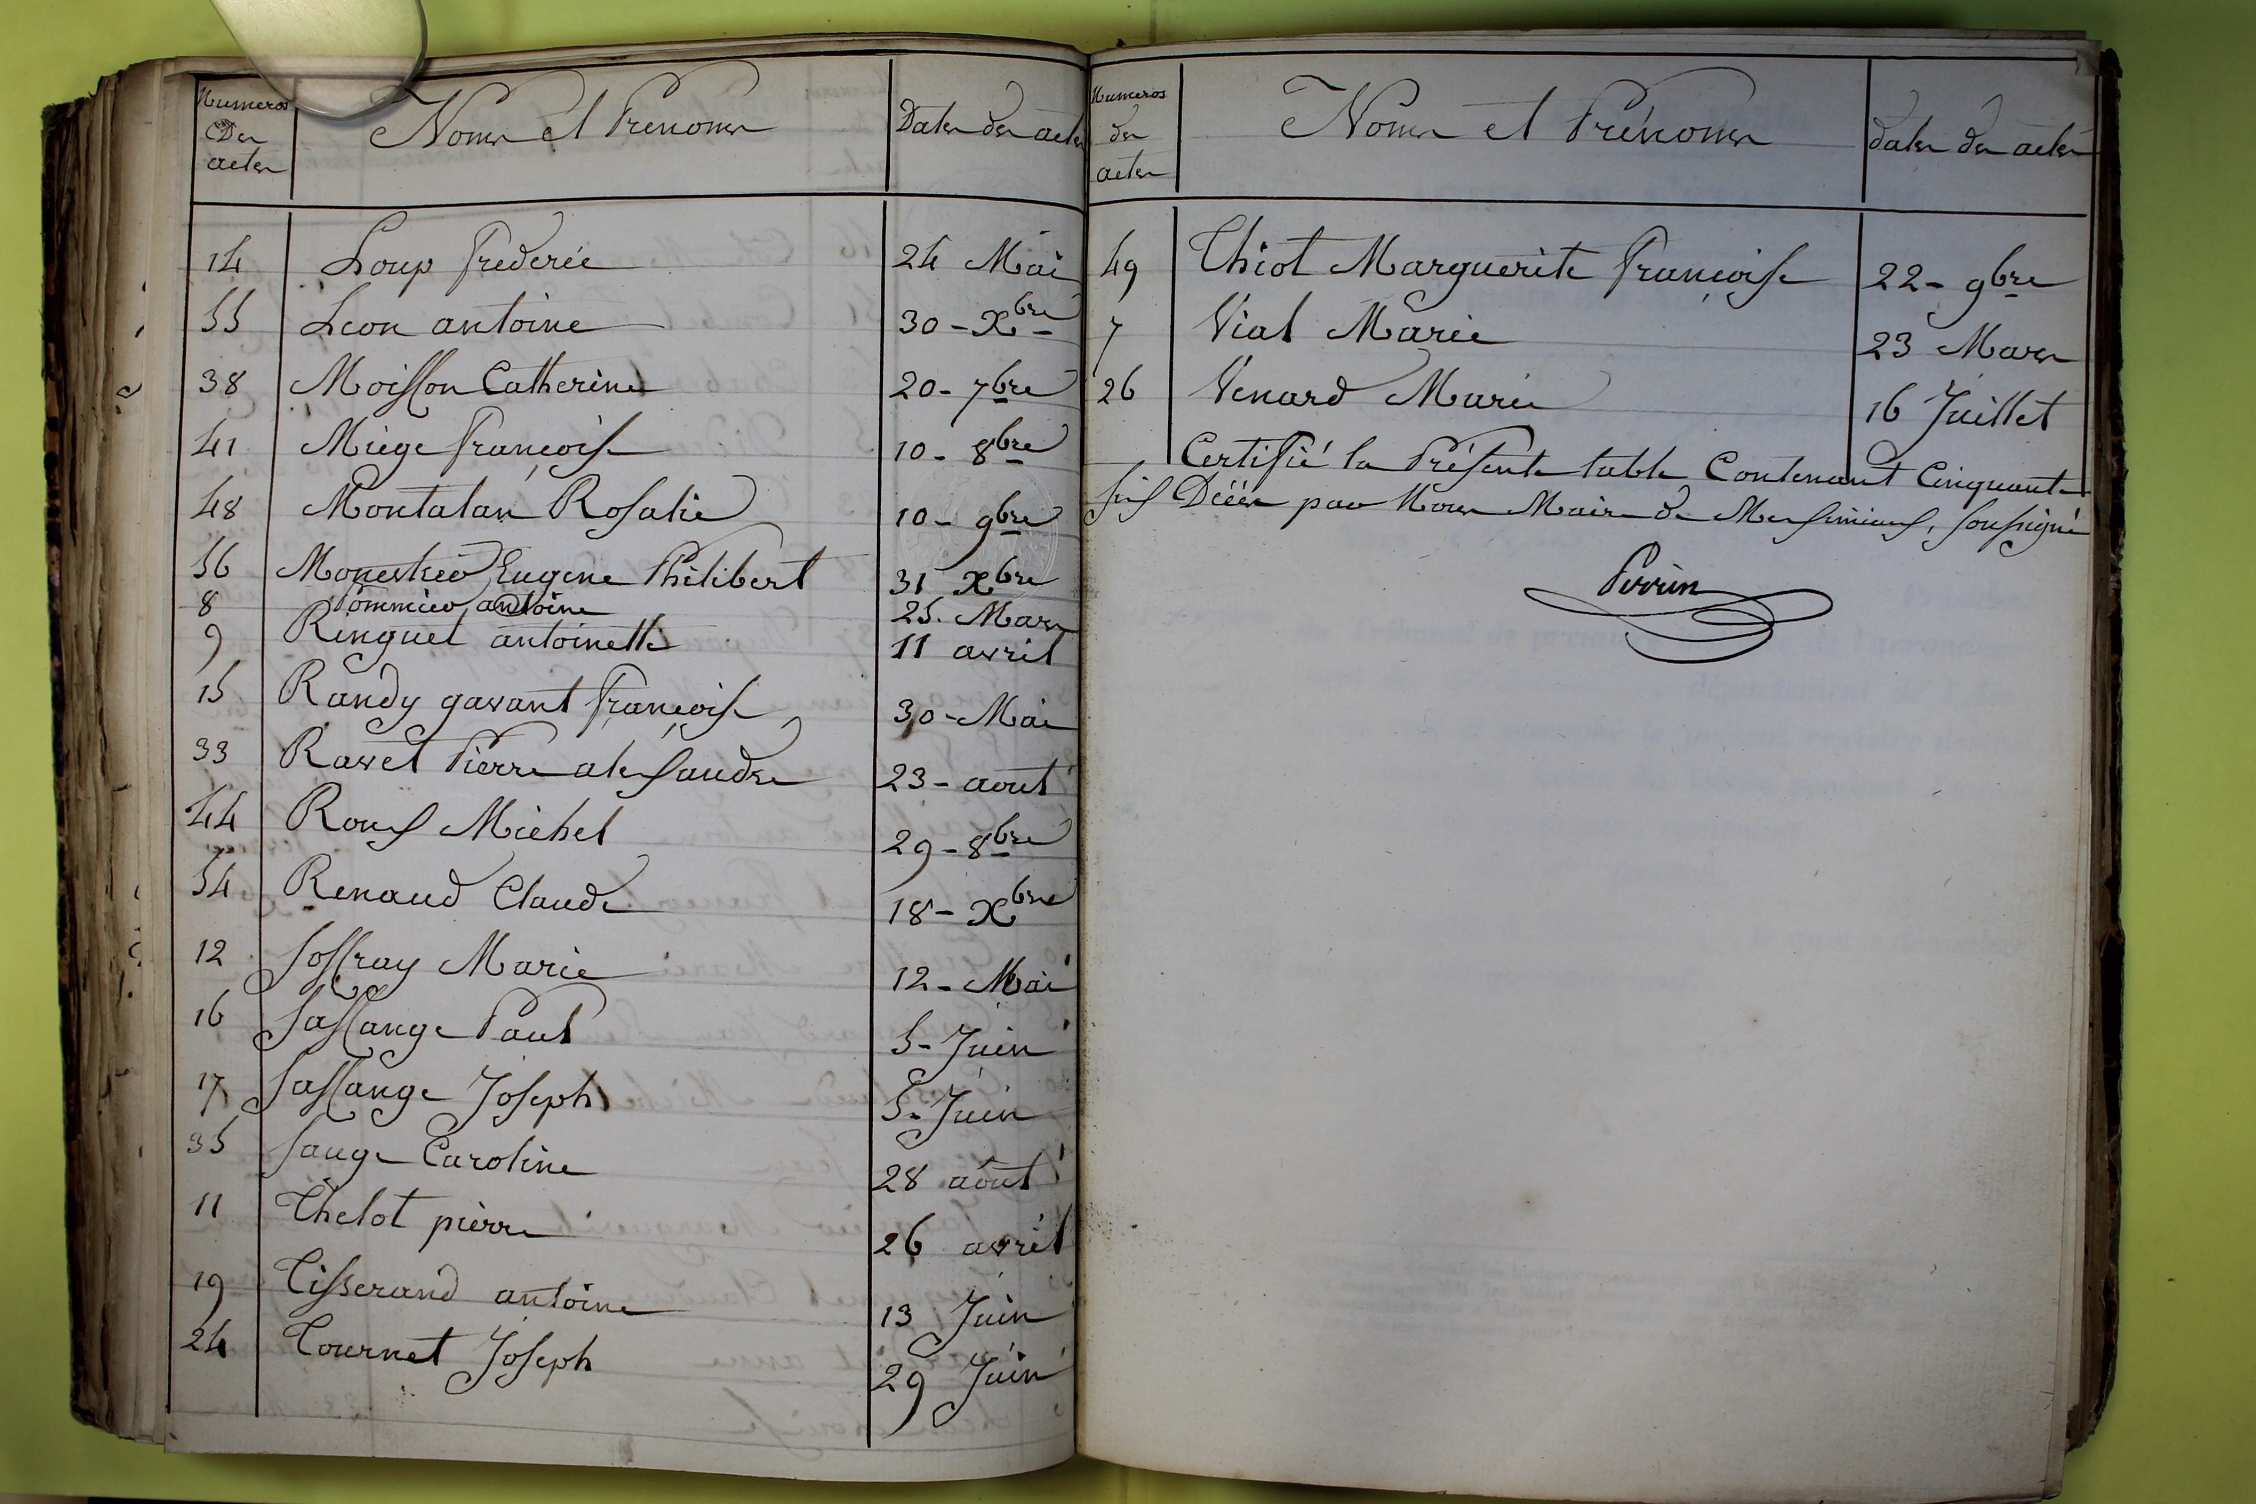 Numeros Des actes Noms et Prénoms Dates des actes
14 Loup frederic 24 Mai
55 Leon antoine 30 - Xbre
38 Moisson Catherine 20 - 7bre
41 Miège françoise 10 - 8bre
48 Montalan Rosalie 10 - 9bre
56 Monestier Eugene Philibert 31 Xbre
8 Pommier antoine 25. Mars
9 Ringuet antoinette 11 avril
15 Randy gavant françoise 30 - Mai
33 Ravet Pierre alexandre 23 - aout
44 Roux Michel 29 - 8bre
54 Renaud Claude 18 - Xbre
12 Soffray Marie 12 - Mai
16 Paul 5 - Juin
17 Joseph 5 - Juin
35 Sauge Caroline 28 aout
11 Thelot pierre 26 avril
19 Tisserand antoine 13 Juin
24 Tournet Joseph 29 Juin
Numeros des actes Noms et Prénoms dates des actes
49 Thiot Marguerite françoise 22 - 9bre
7 Vial Marie 23 Mars
26 Venard Marie 16 Juillet
Certifié la Présente table Contenant Cinquante
six Décès par Nous Maire de Messimieux, soussigné
Perrin